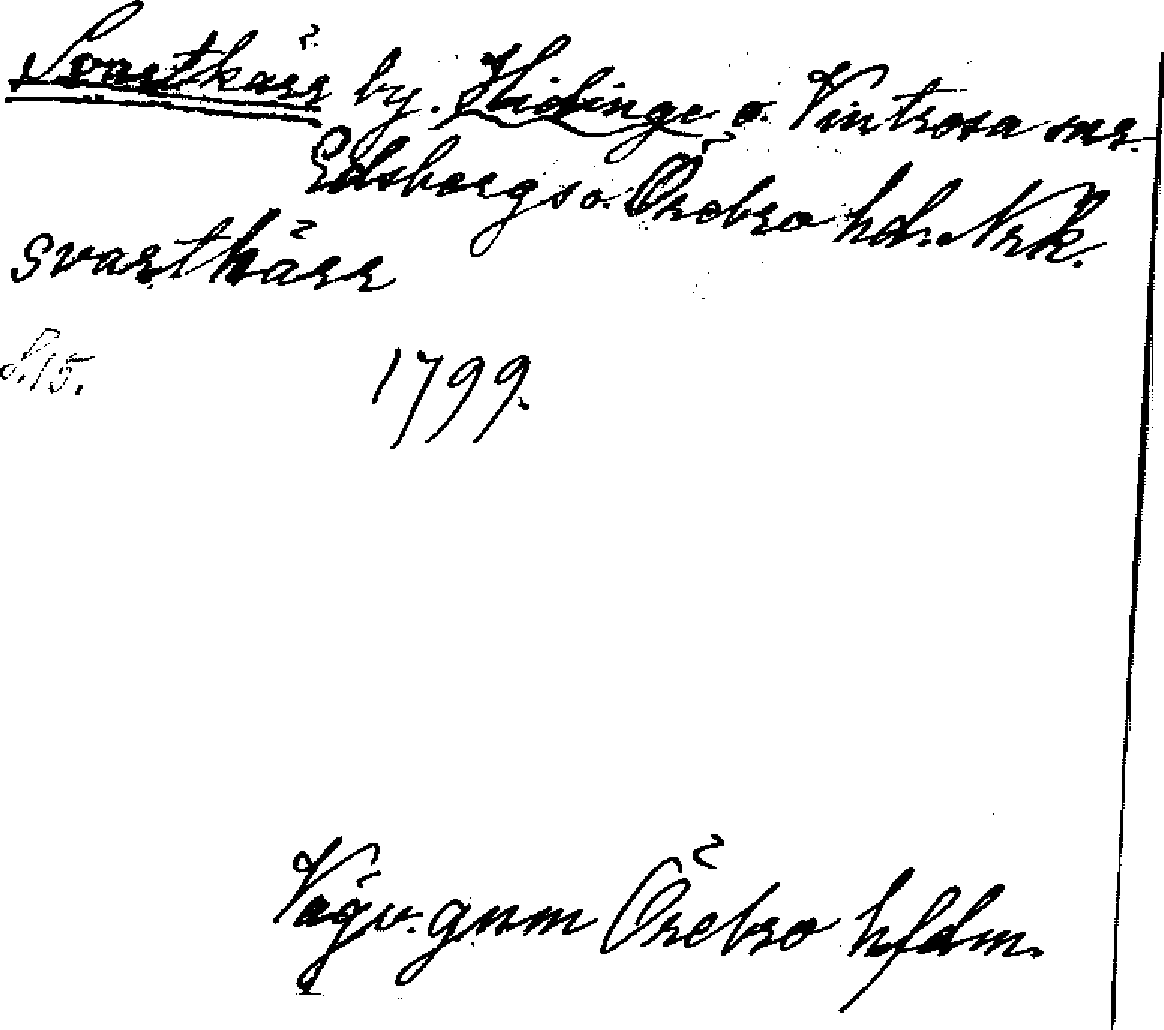 Svartkärr by. Hidinge o. Vintrosa snr.
Edsbergs o. Örebro hdr. Nrk.
svartkärr
S. 15.
1799.
Vägv. gnm Örebro hfdm.